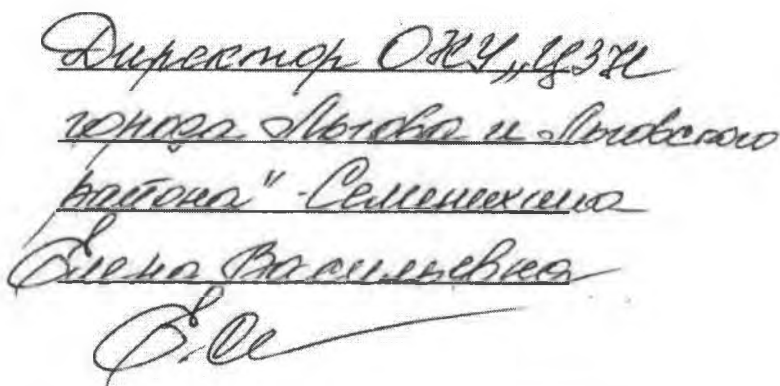 Директор ОКУ „ЦЗН
города Льгова и Льговского
района" - Семенихина
Елена Васильевна